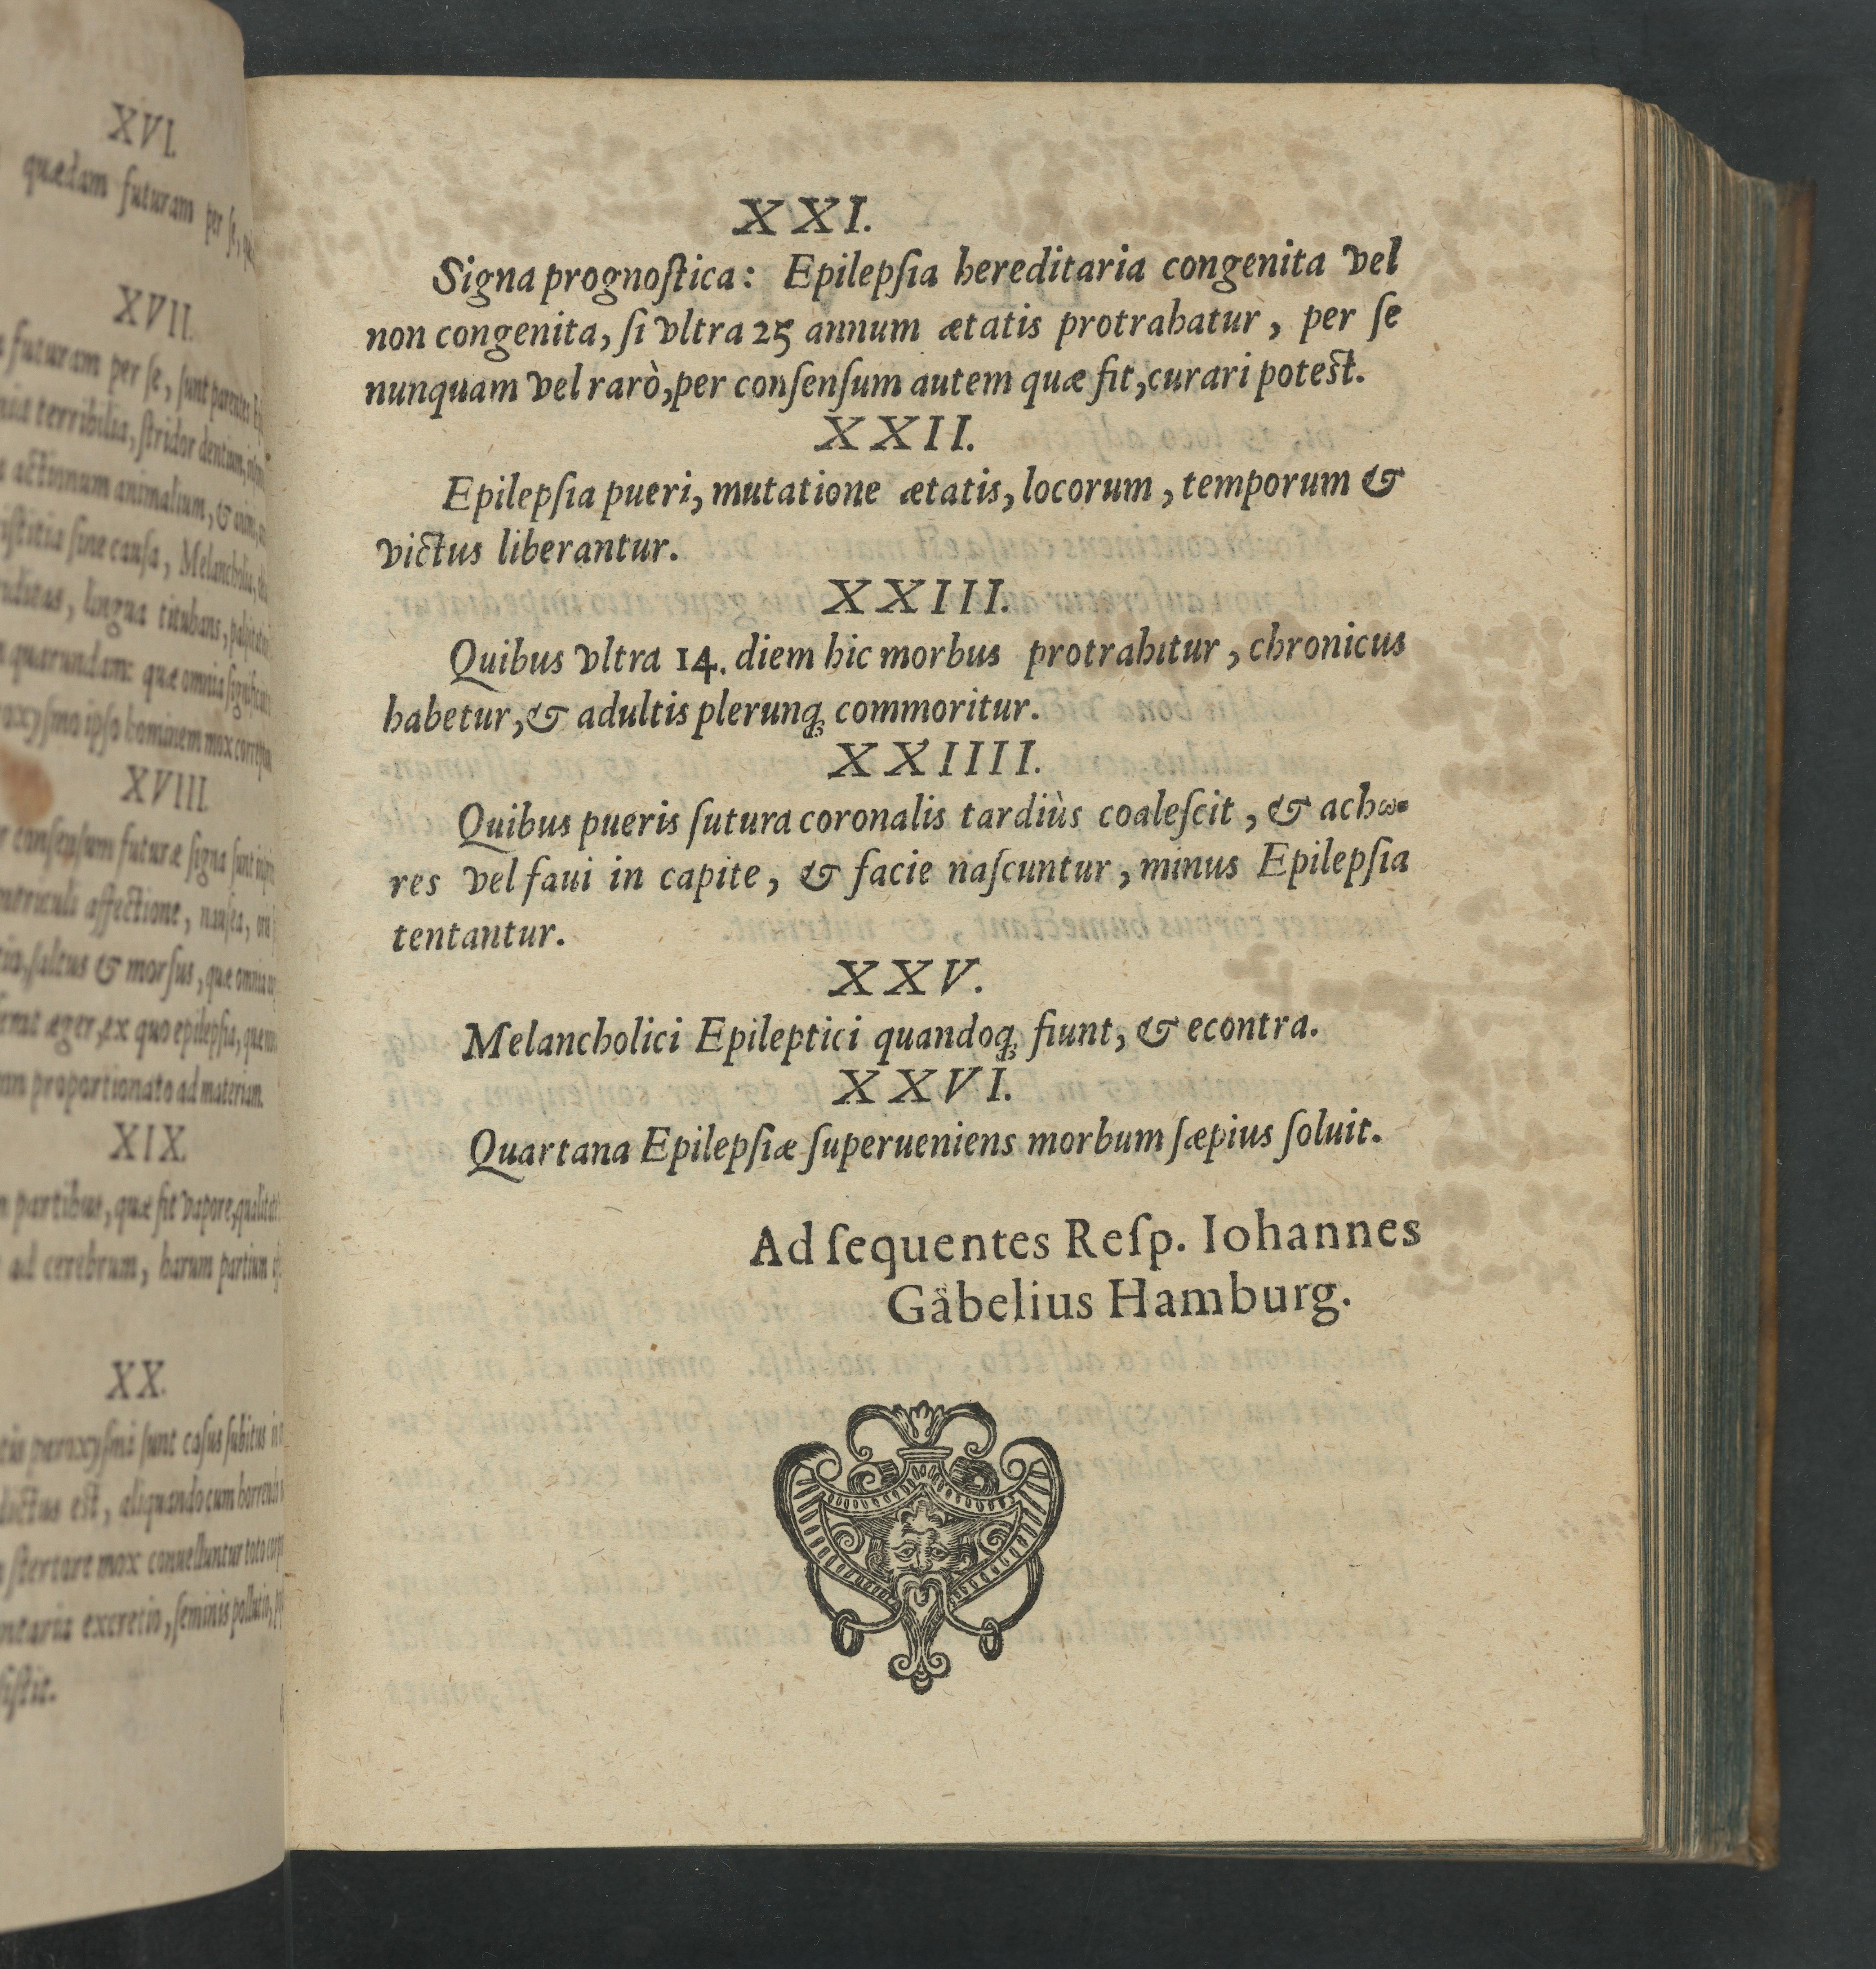 XVI.
quædam futuram per ſe,
XVII.
futuram per ſe, ſunt parentes
terribilia, ſtridor dentium,
actionum animalium, &
ſine cauſa, Melancholia,
lingua titubans,
quarundam: quæ omnia
ipſo hominem mox
XVIII.
conſenſum futuræ ſigna ſunt
affectione, nauſea,
ſaltus & morſus, quæ omnia
æger, ex quo epilepſia,
proportionato ad materiam.
XIX.
partibus, quæ fit vapore,
ad cerebrum, harum partium
XX.
paroxyſmi ſunt caſus ſubitus
est, aliquando cum
ſtertore mox conuelluntur toto
excretio, ſeminis pollutio,
XXI.
Signa prognoſtica: Epilepſia hereditaria congenita vel
non congenita, ſi vltra 25 annum ætatis protrahatur, per ſe
nunquam vel rarò, per conſenſum autem quæ fit, curari potest.
XXII.
Epilepſia pueri, mutatione ætatis, locorum, temporum &
victus liberantur.
XXIII.
Quibus vltra 14. diem hic morbus protrahitur, chronicus
habetur, & adultis plerunq; commoritur.
XXIIII.
Quibus pueris ſutura coronalis tardiùs coaleſcit, & achω-
res vel faui in capite, & facie naſcuntur, minus Epilepſia
tentantur.
XXV.
Melancholici Epileptici quandoq; fiunt, & econtra.
XXVI.
Quartana Epilepſiæ ſuperueniens morbum ſæpius ſoluit.
Ad ſequentes Reſp. Iohannes
Gäbelius Hamburg.